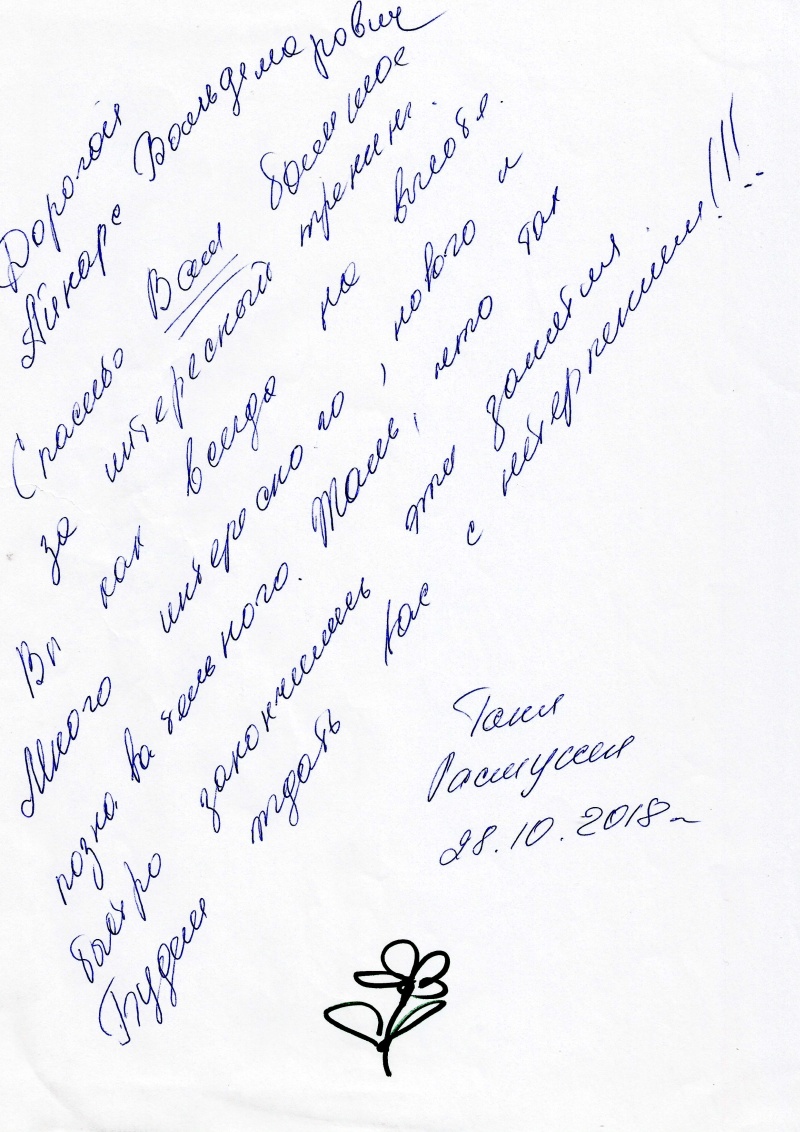 Дорогой
Айнарс Вольдемарович
Спасибо Вам большое
за интересный тренинг.
Вы как всегда на высоте.
Много интересного, нового и
познавательного. Жаль, что так
быстро закончились эти занятия.
Будем ждать Вас с нетерпением!!!
Таня
28.10.2018г